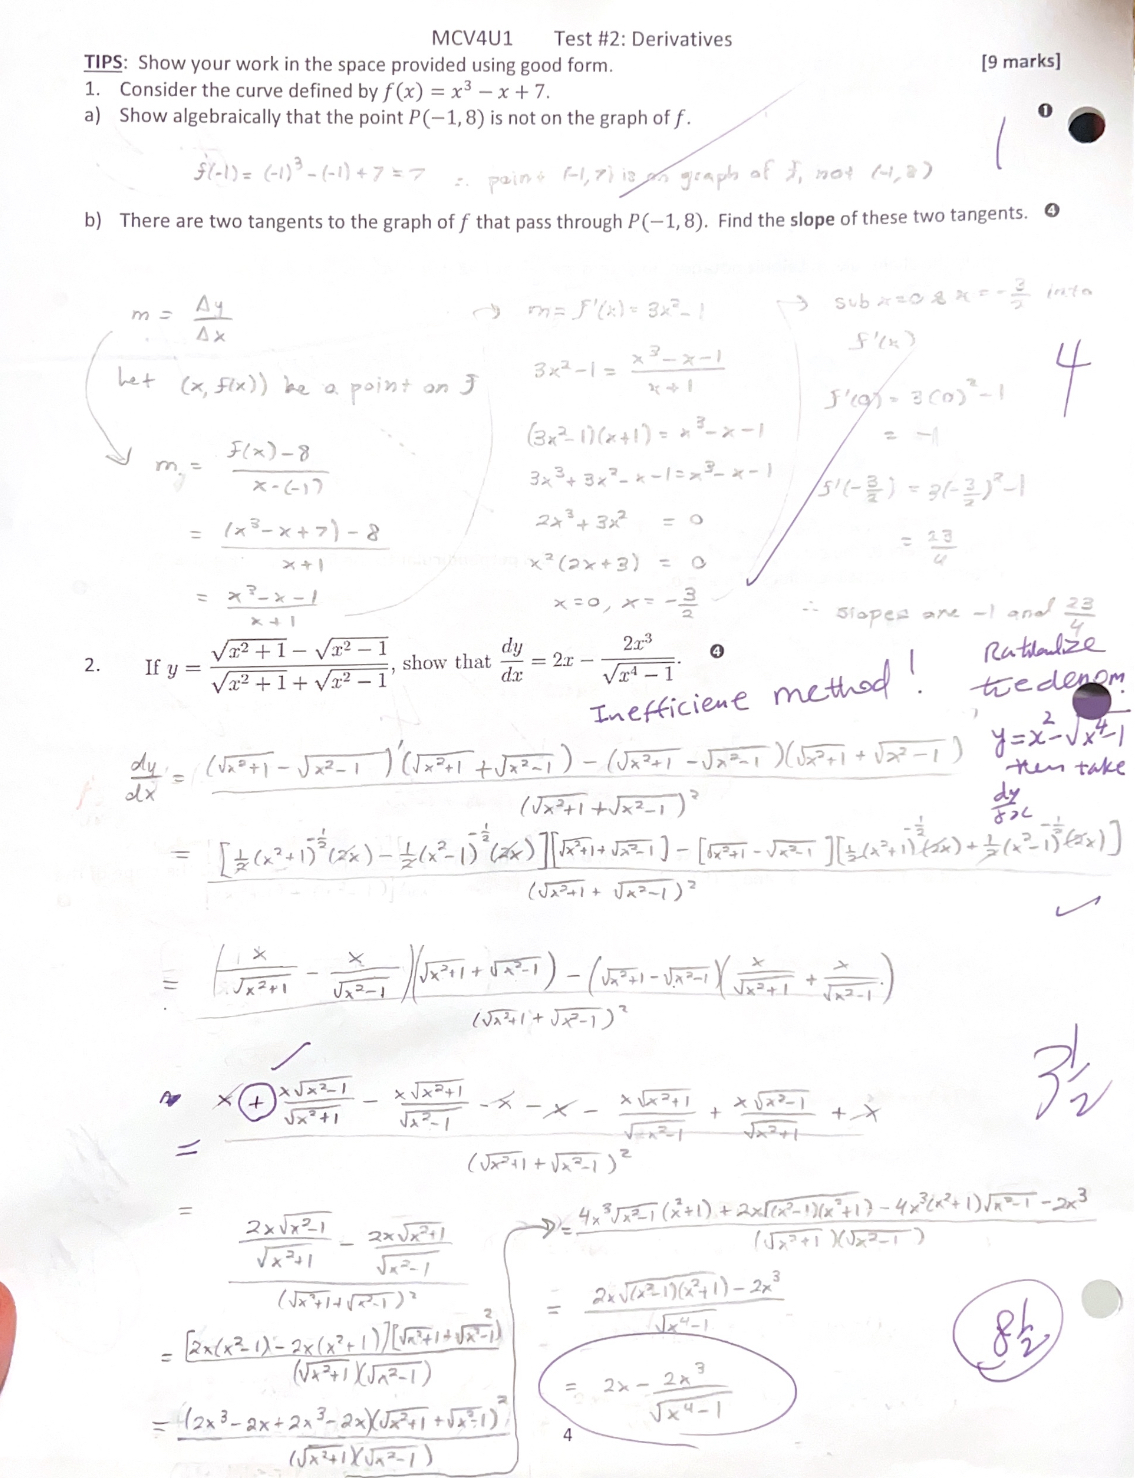 MCV4U1 Test #2: Derivatives
TIPS: Show your work in the space provided using good form. [9 marks]
1. Consider the curve defined by f(x) = x³ − x + 7.
a) Show algebraically that the point P(−1, 8) is not on the graph of f. ❶
1
f(-1) = (-1)³ - (-1) + 7 = 7 ∴ point (-1, 7) is on graph of f, not (-1, 8)
b) There are two tangents to the graph of f that pass through P(−1, 8). Find the slope of these two tangents. ❹
m = Δy/Δx
Let (x, f(x)) be a point on f
m = (f(x) - 8)/(x - (-1))
= ((x³ - x + 7) - 8)/(x + 1)
= (x³ - x - 1)/(x + 1)
→ m = f'(x) = 3x² - 1
3x² - 1 = (x³ - x - 1)/(x + 1)
(3x² - 1)(x + 1) = x³ - x - 1
3x³ + 3x² - x - 1 = x³ - x - 1
2x³ + 3x² = 0
x²(2x + 3) = 0
x = 0, x = -3/2
→ sub x = 0 & x = -3/2 into
f'(x)
f'(0) = 3(0)² - 1
= -1
f'(-3/2) = 3(-3/2)² - 1
= 23/4
∴ slopes are -1 and 23/4
4
2. If y = (√(x² + 1) − √(x² − 1))/(√(x² + 1) + √(x² − 1)), show that dy/dx = 2x − 2x³/√(x⁴ − 1). ❹
Inefficient method!
Rationalize
the denom.
y = x² - √(x⁴ - 1)
then take
dy/dx
dy/dx = ((√(x²+1) - √(x²-1))'(√(x²+1) + √(x²-1)) - (√(x²+1) - √(x²-1))(√(x²+1) + √(x²-1)))/(√(x²+1) + √(x²-1))²
= ([½(x²+1)^(-½)(2x) - ½(x²-1)^(-½)(2x)][√(x²+1) + √(x²-1)] - [√(x²+1) - √(x²-1)][½(x²+1)^(-½)(2x) + ½(x²-1)^(-½)(2x)])/(√(x²+1) + √(x²-1))²
= ((x/√(x²+1) - x/√(x²-1))(√(x²+1) + √(x²-1)) - (√(x²+1) - √(x²-1))(x/√(x²+1) + x/√(x²-1)))/(√(x²+1) + √(x²-1))²
= (x + x√(x²-1)/√(x²+1) - x√(x²+1)/√(x²-1) - x - x - x√(x²+1)/√(x²-1) + x√(x²-1)/√(x²+1) + x)/(√(x²+1) + √(x²-1))²
3½
= (2x√(x²-1)/√(x²+1) - 2x√(x²+1)/√(x²-1))/(√(x²+1) + √(x²-1))²
= [2x(x²-1) - 2x(x²+1)][√(x²+1) + √(x²-1)]²/((√(x²+1))(√(x²-1)))
= (2x³ - 2x + 2x³ - 2x)(√(x²+1) + √(x²-1))²/((√(x²+1))(√(x²-1)))
→ = (4x³√(x²-1)(x²+1) + 2x√((x²-1)(x²+1)) - 4x³(x²+1)√(x²-1) - 2x³)/((√(x²+1))(√(x²-1)))
= (2x√((x²-1)(x²+1)) - 2x³)/√(x⁴-1)
= 2x - 2x³/√(x⁴-1)
8½
4